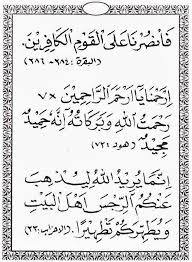 فَانْصُرْنَا عَلَى الْقَوْمِ الْكَافِرِينَ.
(البقرة: ٢٨٤-٢٨٦)
اِرْحَمْنَا يَا اَرْحَمَ الرَّاحِمِينَ ٧×
رَحْمَتُ اللهِ وَبَرَكَاتُهُ اِنَّهُ حَمِيدٌ
مَجِيدٌ (هود: ٧٣)
اِنَّمَا يُرِيدُ اللهُ لِيُذْهِبَ
عَنْكُمُ الرِّجْسَ اَهْلَ الْبَيْتِ
وَيُطَهِّرَكُمْ تَطْهِيرًا (الاحزاب: ٣٣)